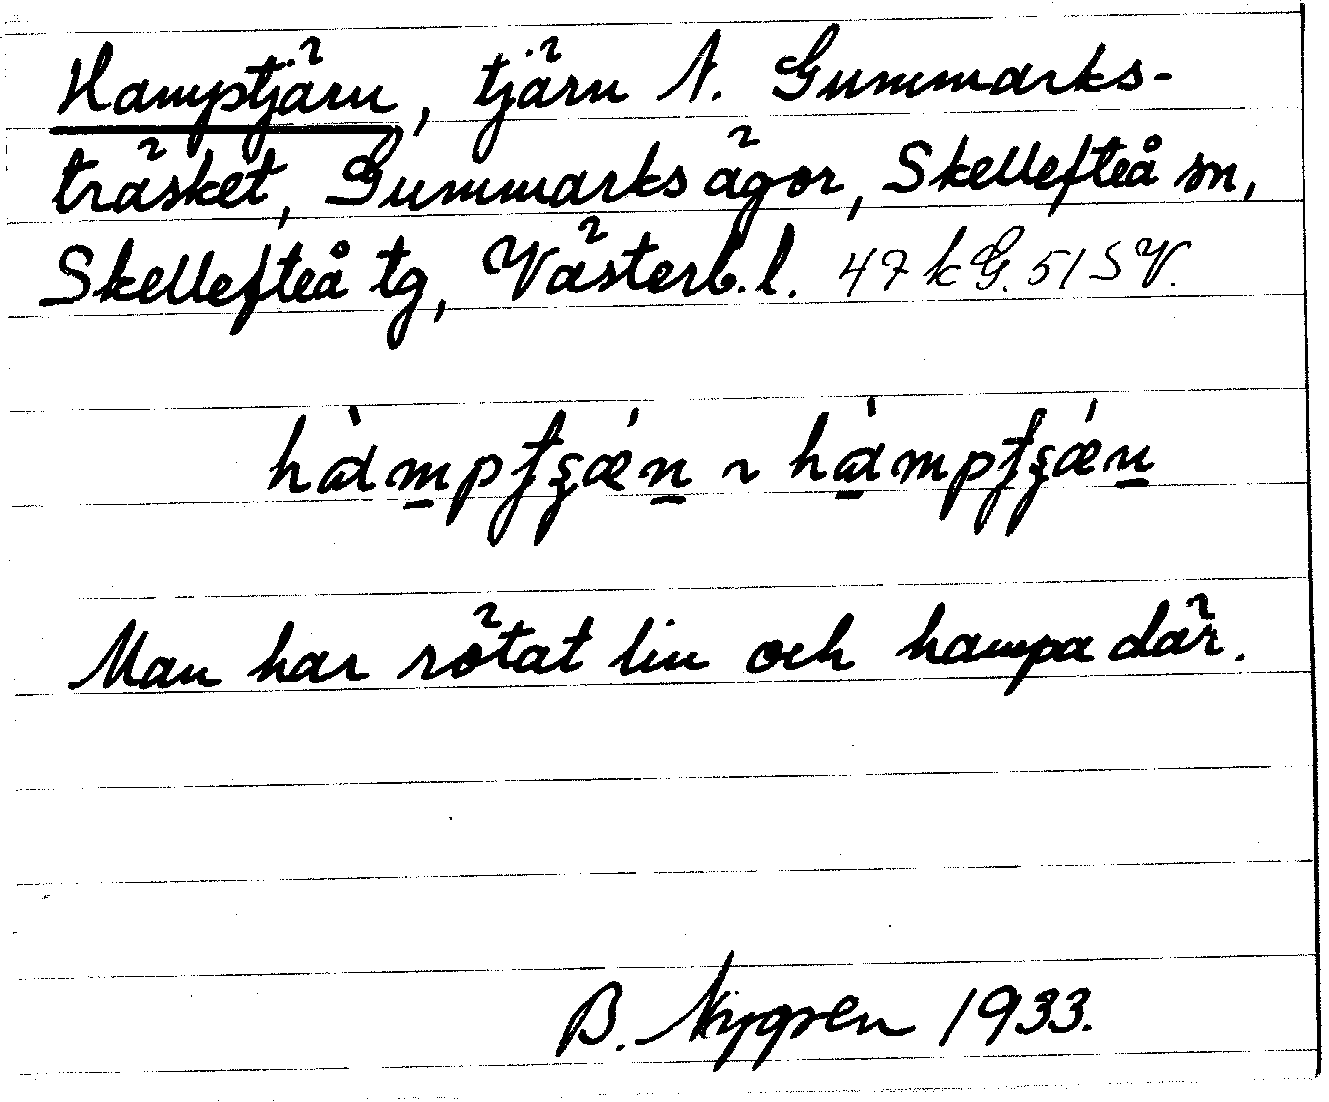 Hamptjärn, tjärn N. Gummarks-
träsket, Gummarks ägor, Skellefteå sn,
Skellefteå tg, Västerb. l. 47 k G. 51 SV.
Man har rötat lin och hampa där.
B. Nygren 1933.